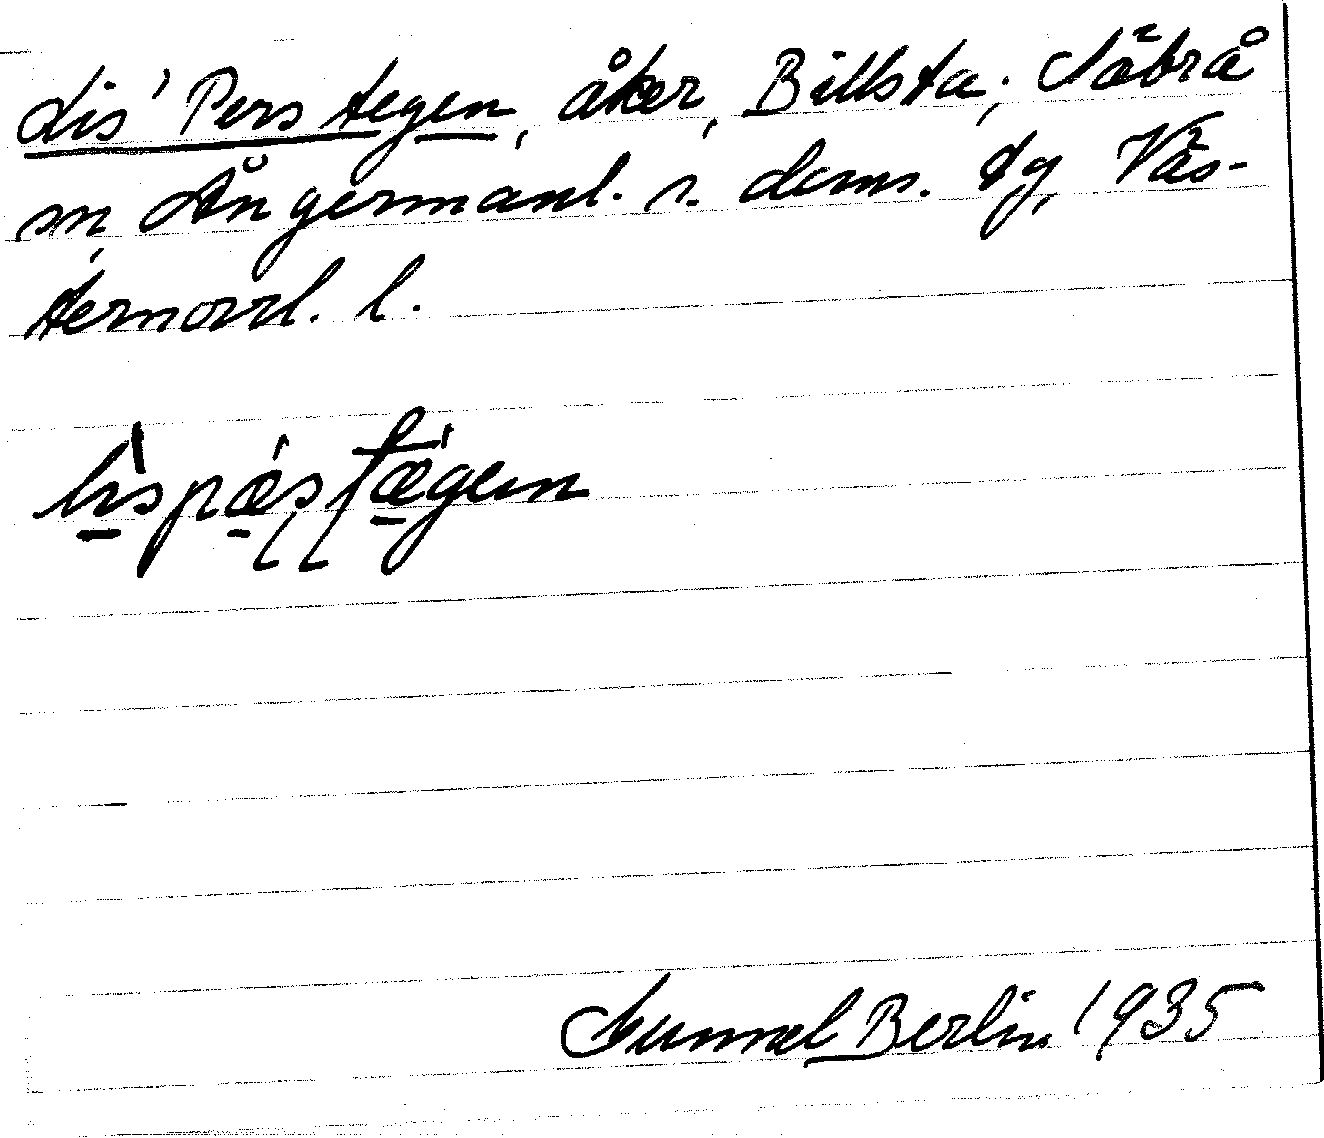 Lis' Pers tegen, åker, Billsta, Säbrå
sn, Ångermanl. s. doms. tg, Väs-
ternorrl. l.
lispæsstægen
Gunnel Berlin 1935